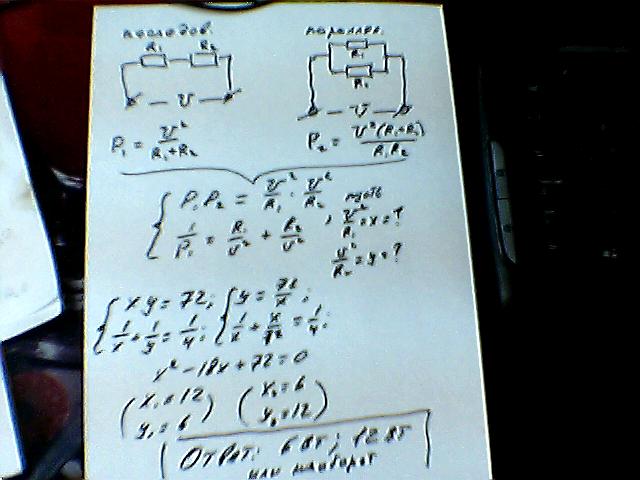 последов. паралл.
R₁ R₂ R₁
R₂
U U
P₁ = U²/(R₁+R₂) P₂ = U²(R₁+R₂)/(R₁R₂)
{ P₁P₂ = U²/R₁ · U²/R₂
1/P₁ = R₁/U² + R₂/U² , пусть U²/R₁ = x = ?
U²/R₂ = y = ?
{ xy = 72; { y = 72/x;
1/x + 1/y = 1/4; 1/x + x/72 = 1/4;
x² - 18x + 72 = 0
( x₁ = 12 ) ( x₂ = 6 )
( y₁ = 6 ) ( y₂ = 12 )
Ответ: 6 Вт; 12 Вт
или наоборот